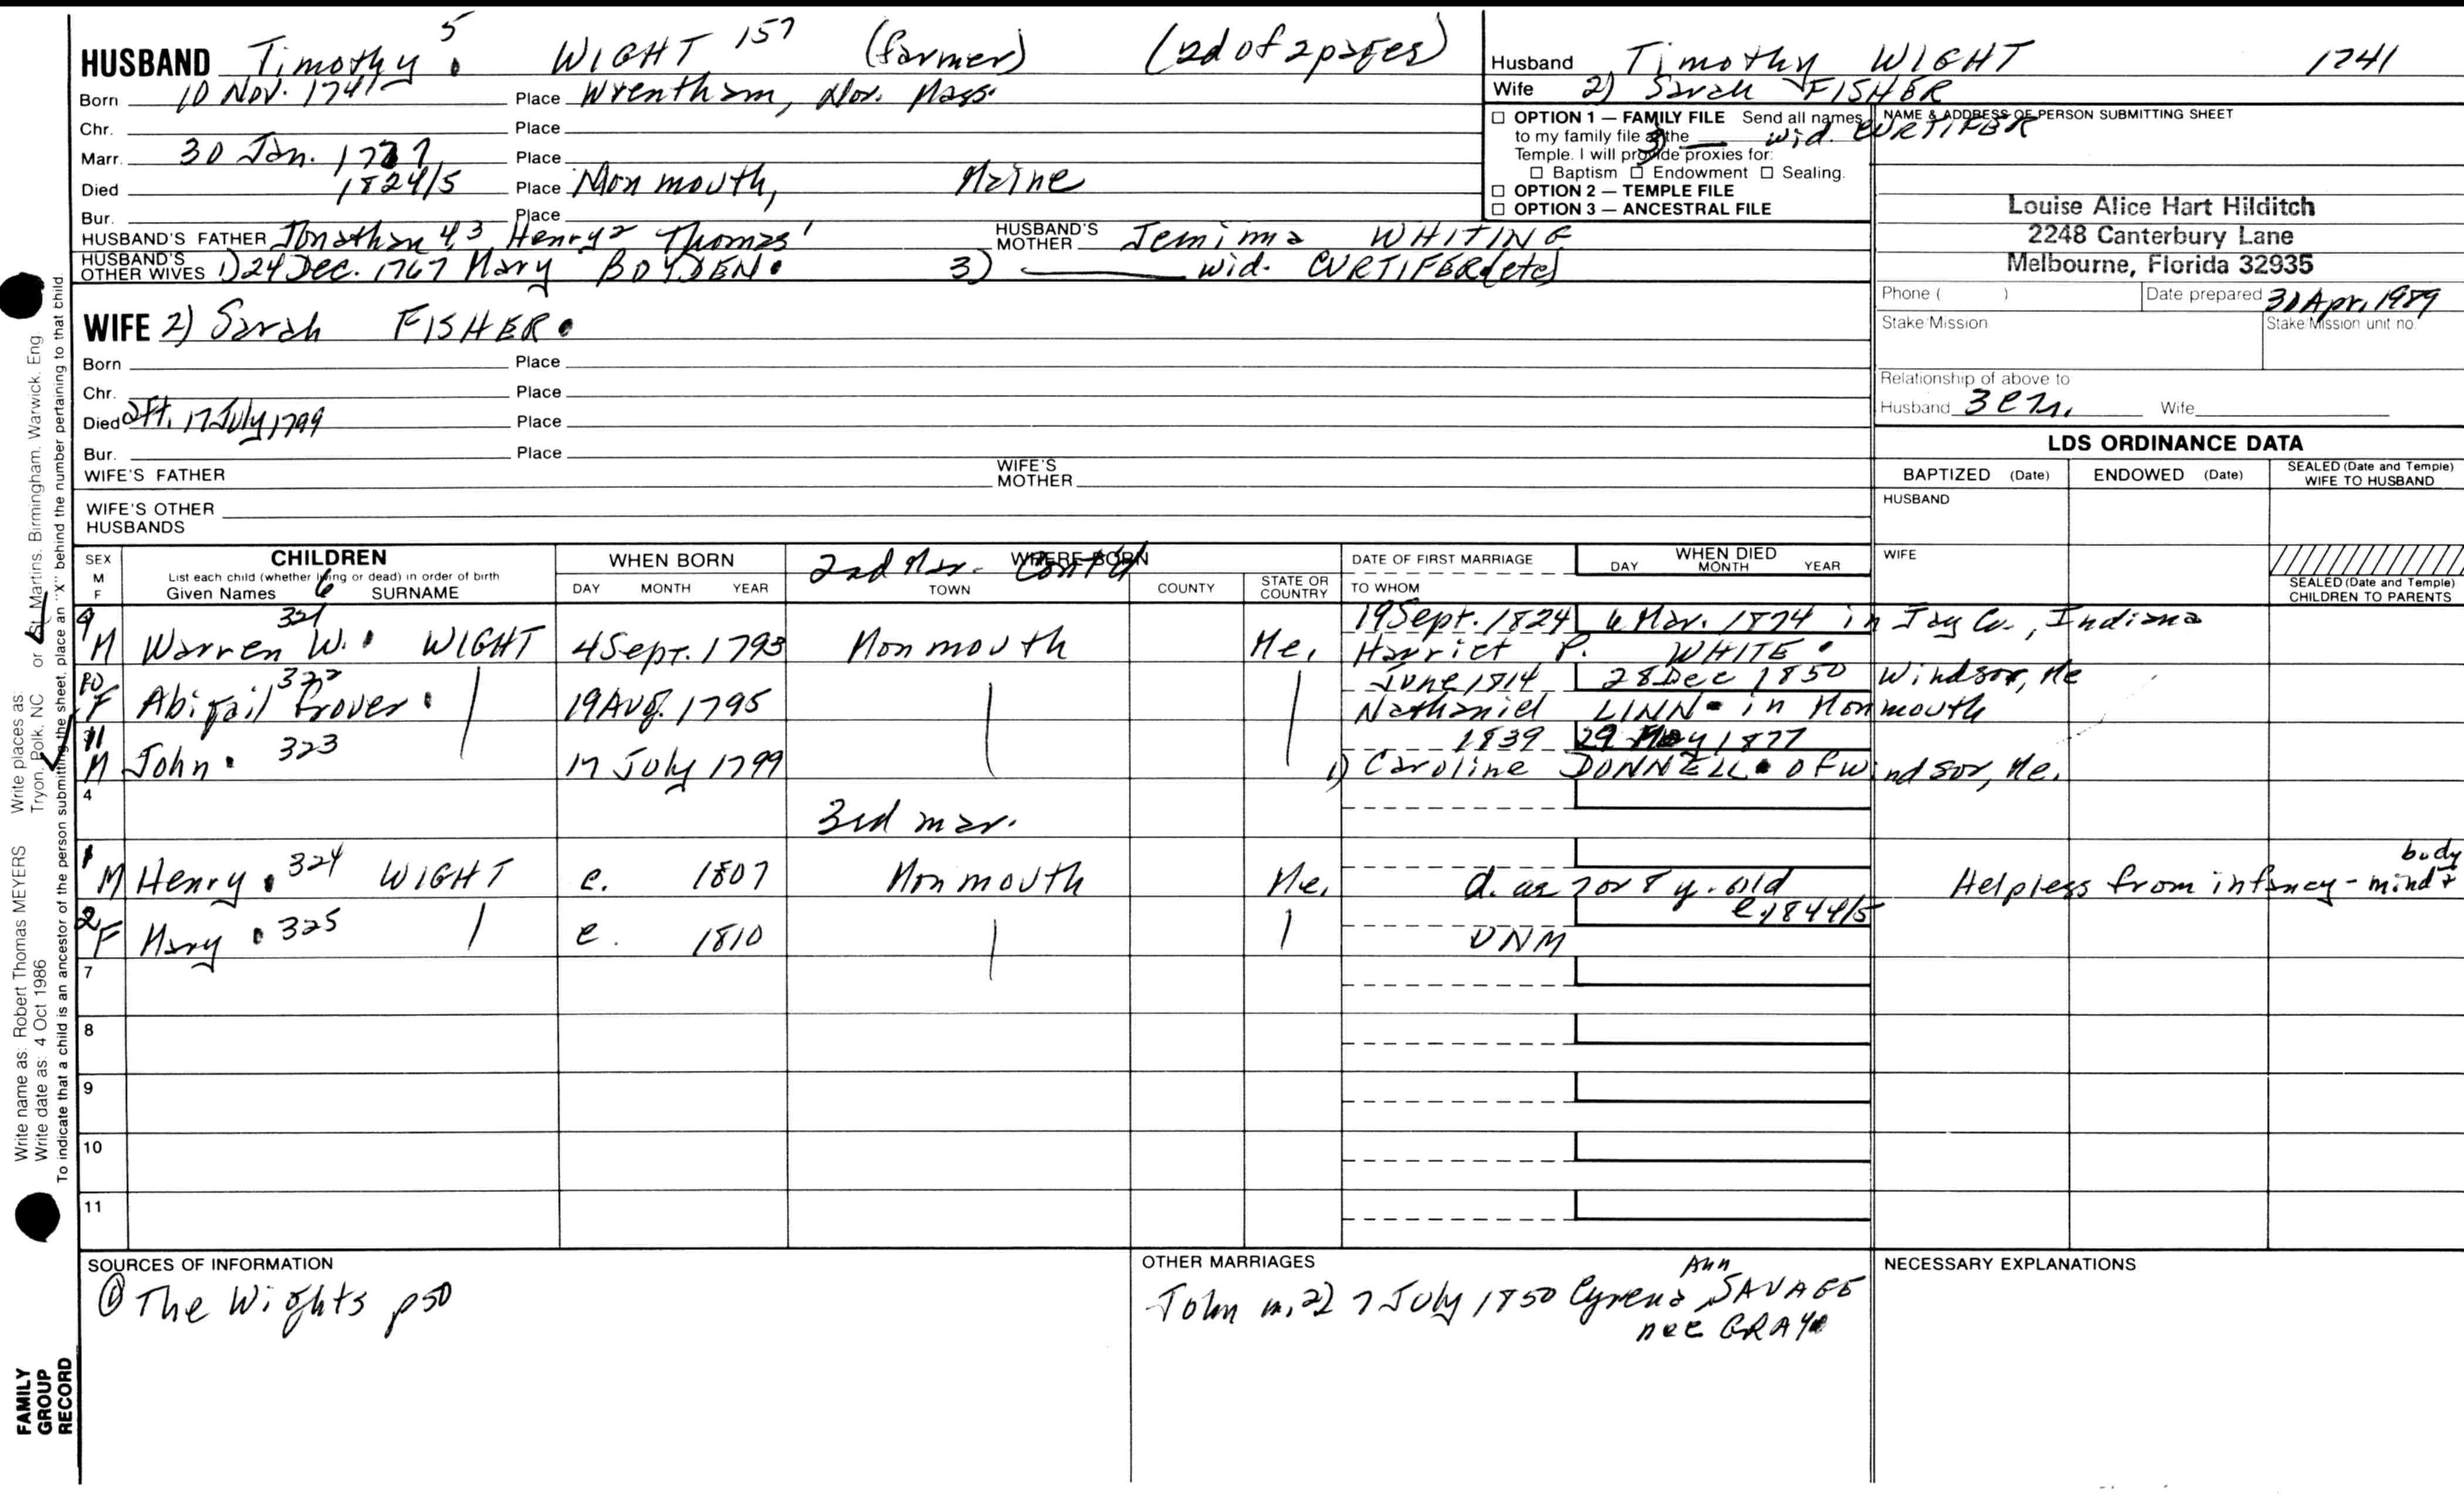 HUSBAND Timothy 5 WIGHT 157 (farmer) (2d of 2 pages)
Born 10 Nov. 1741 Place Wrentham, Nor. Mass.
Chr. Place
Marr. 30 Jan. Place
Died 1824/5 Place Monmouth, Maine
Bur. Place
HUSBAND'S FATHER Jonathan 4,3 Henry2 Thomas1 HUSBAND'S MOTHER Jemima WHITING
HUSBAND'S OTHER WIVES 1) 24 Dec. 1767 Mary BOYDEN. 3) ___ wid. CURTIFER (etc)
WIFE 2) Sarah FISHER.
Born Place
Chr. Place
Died aft. 17 July 1799 Place
Bur. Place
WIFE'S FATHER WIFE'S MOTHER
WIFE'S OTHER HUSBANDS
Husband Timothy WIGHT 1741
Wife 2) Sarah FISHER
3) ___ wid. CURTIFER
OPTION 1 — FAMILY FILE Send all names
to my family file at the
Temple. I will provide proxies for:
Baptism Endowment Sealing.
OPTION 2 — TEMPLE FILE
OPTION 3 — ANCESTRAL FILE
NAME & ADDRESS OF PERSON SUBMITTING SHEET
Louise Alice Hart Hilditch
2248 Canterbury Lane
Melbourne, Florida 32935
Phone ( ) Date prepared Apr. 1989
Stake/Mission Stake/Mission unit no.
Relationship of above to
Husband Wife
LDS ORDINANCE DATA
BAPTIZED (Date) ENDOWED (Date) SEALED (Date and Temple) WIFE TO HUSBAND
HUSBAND
WIFE
SEALED (Date and Temple) CHILDREN TO PARENTS
SEX M F
CHILDREN
List each child (whether living or dead) in order of birth
Given Names 6 SURNAME
WHEN BORN
DAY MONTH YEAR
WHERE BORN
2nd Mar. Cont'd
TOWN COUNTY STATE OR COUNTRY
DATE OF FIRST MARRIAGE
TO WHOM
WHEN DIED
DAY MONTH YEAR
9 M Warren W. 321 WIGHT 4 Sept. 1793 Monmouth Me. 19 Sept. 1824 6 Mar. 1874 in Jay Co., Indiana
Harriet P. WHITE.
10 F Abigail Prover. 322 19 Aug. 1795 June 1814 28 Dec 1850 Windsor, Me
Nathaniel LINN. in Monmouth
11 M John. 323 17 July 1799 1839 29 May 1877
1) Caroline DONNELL. of Windsor, Me.
4
3rd mar.
1 M Henry. 324 WIGHT c. 1807 Monmouth Me. d. as 7 or 8 y. old Helpless from infancy - mind + body
2 F Mary. 325 c. 1810 UNM c. 1844/5
7
8
9
10
11
SOURCES OF INFORMATION
① The Wights p50
OTHER MARRIAGES
John m. 2) 7 July 1850 Cyrena Ann SAVAGE
nee GRAY
NECESSARY EXPLANATIONS
Write places as: Tryon, Polk, NC or St. Martins, Birmingham, Warwick, Eng.
Write name as: Robert Thomas MEYERS
Write date as: 4 Oct 1986
To indicate that a child is an ancestor of the person submitting the sheet, place an "X" behind the number pertaining to that child.
FAMILY
GROUP
RECORD